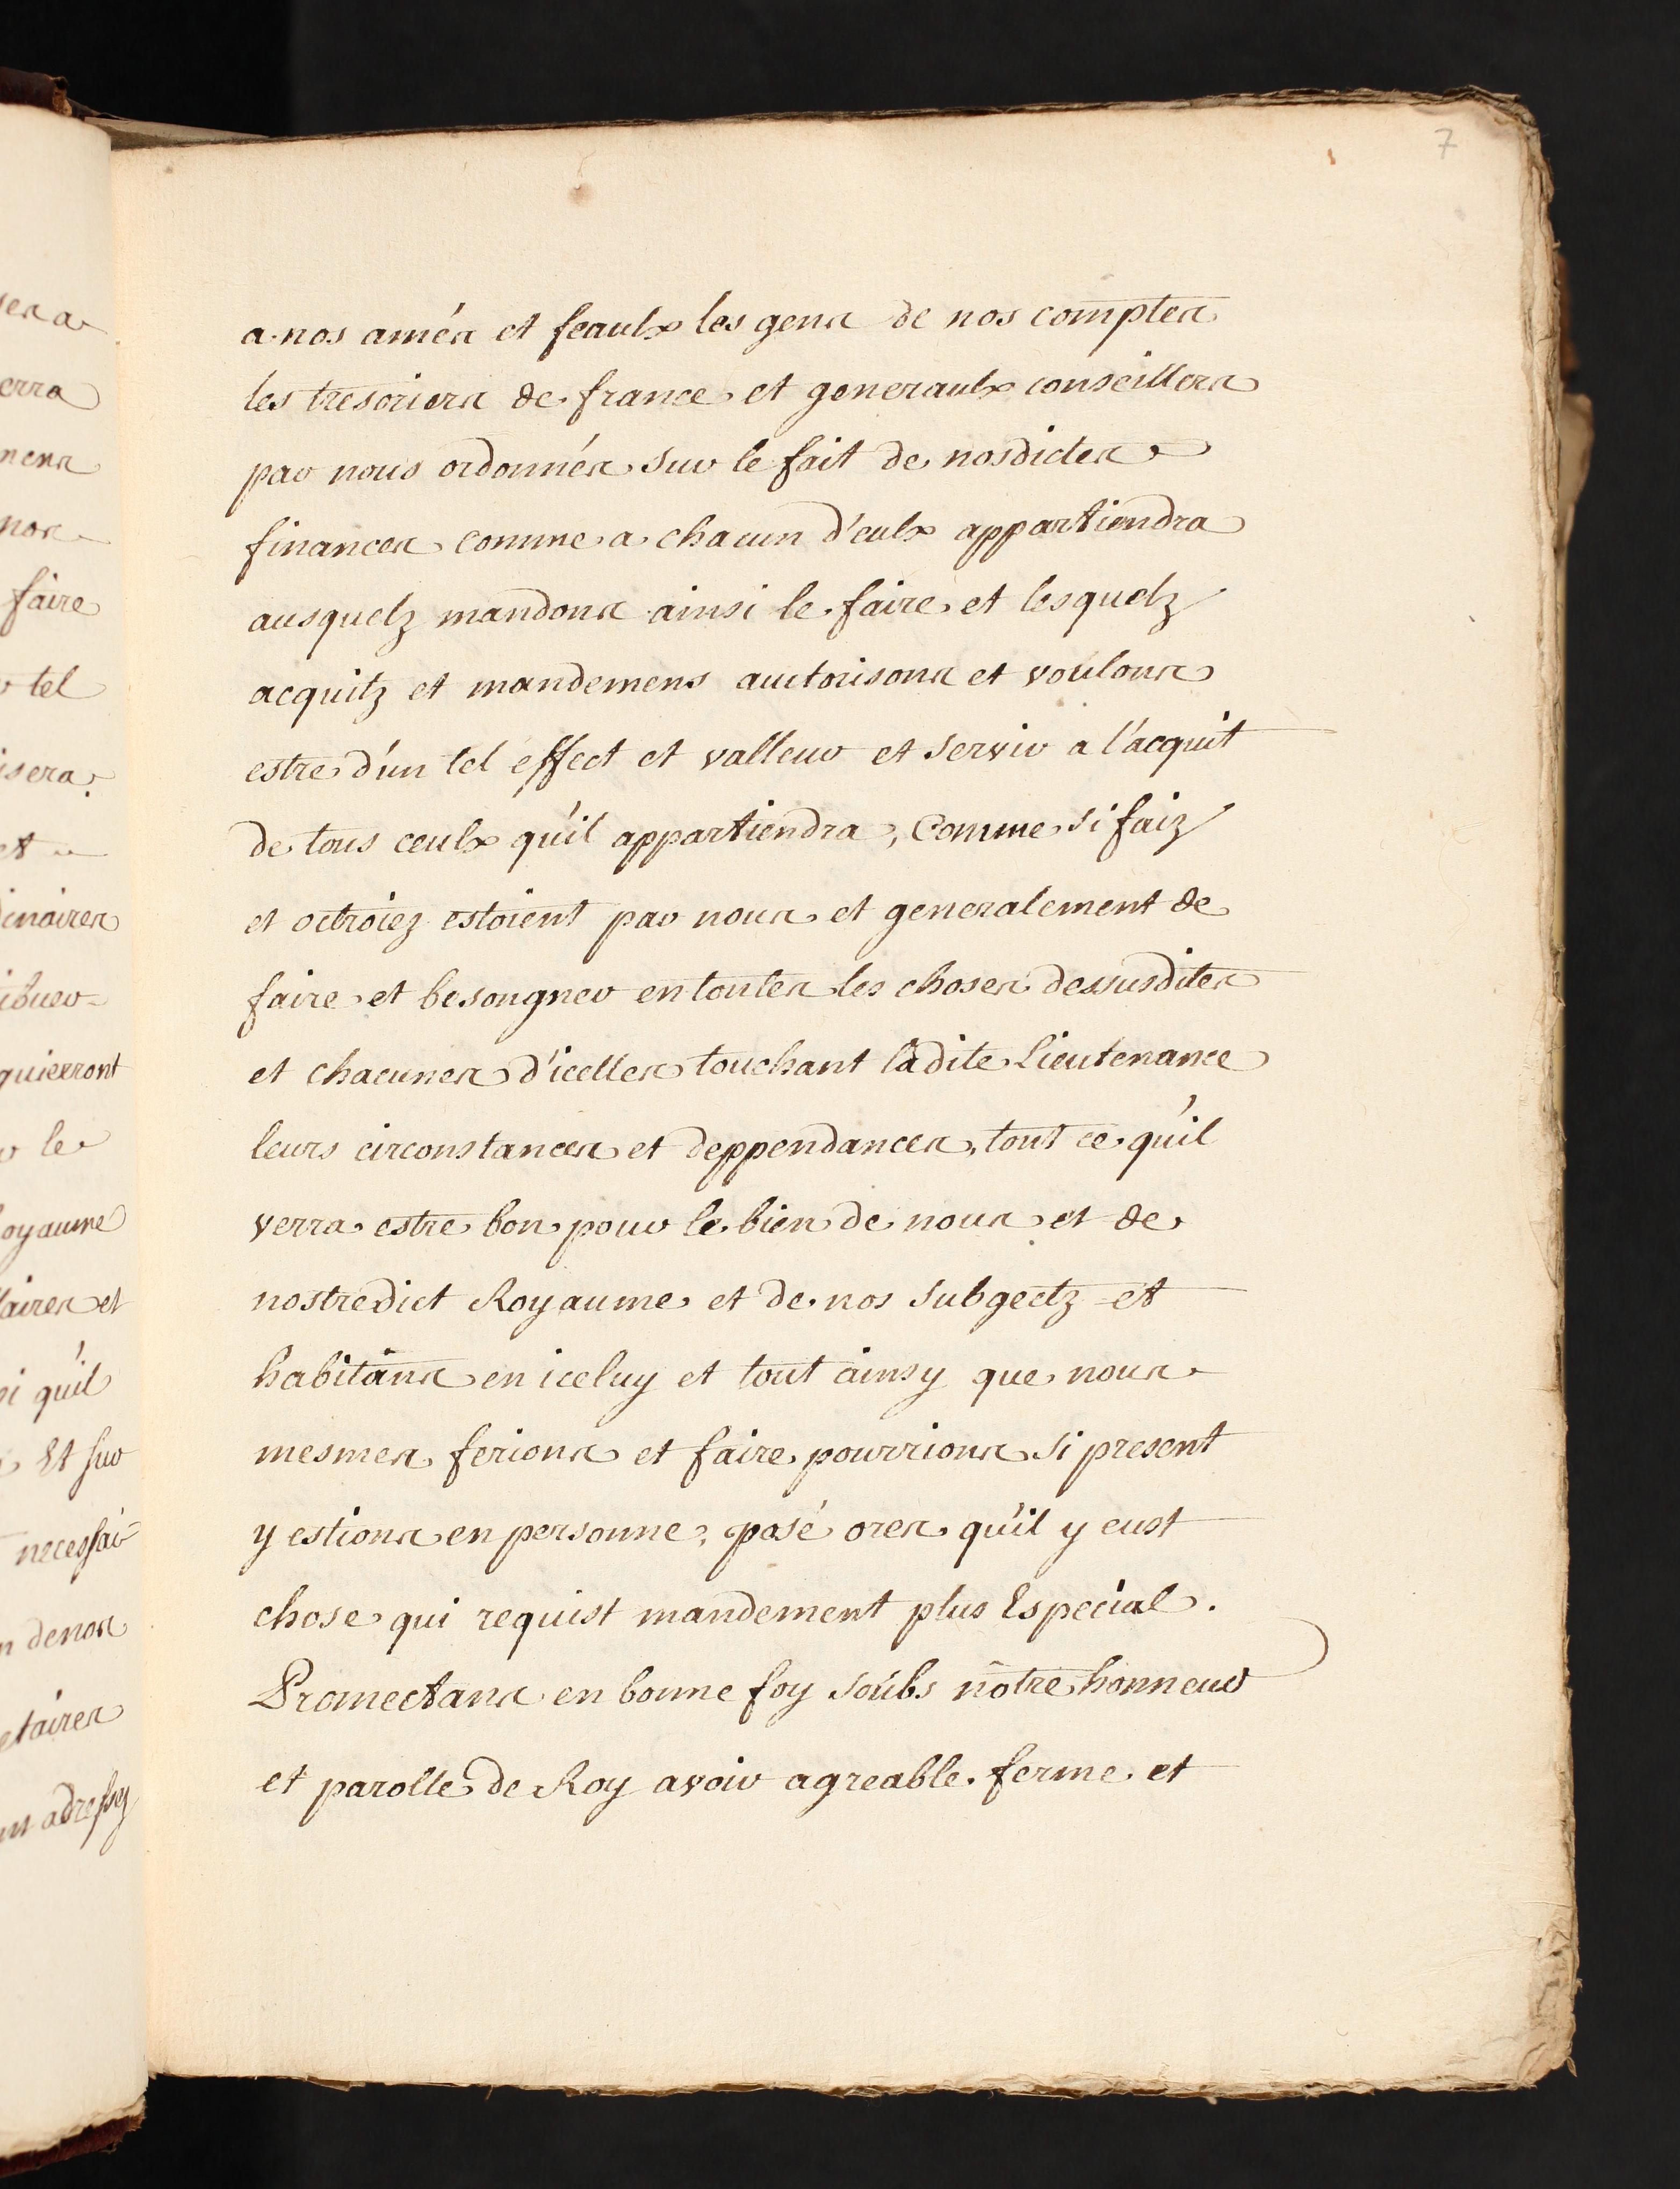 7
a nos amés et feaulx les gens de nos comptes
les tresoriers de france et generaulx conseillers
par nous ordonnés sur le fait de nosdictes
finances comme a chacun d'eulx appartiendra
ausquelz mandons ainsi le faire et lesquelz
acquitz et mandemens auctorisons et voulons
estre d'un tel effect et valleur et servir a l'acquit
de tous ceulx qu'il appartiendra, Comme si faiz
et octroiez estoient par nous et generalement de
faire et besongner en toutes les choses dessusdites
et chacunes d'icelles touchant ladite Lieutenance
leurs circonstances et deppendances, tout ce qu'il
verra estre bon pour le bien de nous et de
nostredict Royaume et de nos subgectz et
habitans en iceluy et tout ainsy que nous
mesmes ferions et faire pourrions si present
y estions en personne, posé ores qu'il y eust
chose qui requist mandement plus Especial.
Promectans en bonne foy soubs nôtre honneur
et parolle de Roy avoir agreable. ferme et
erra
mens
nos
faire
tel
et
quierront
le
oyaume
aires et
qu'il
Et sur
necessai-
n denos
etaires